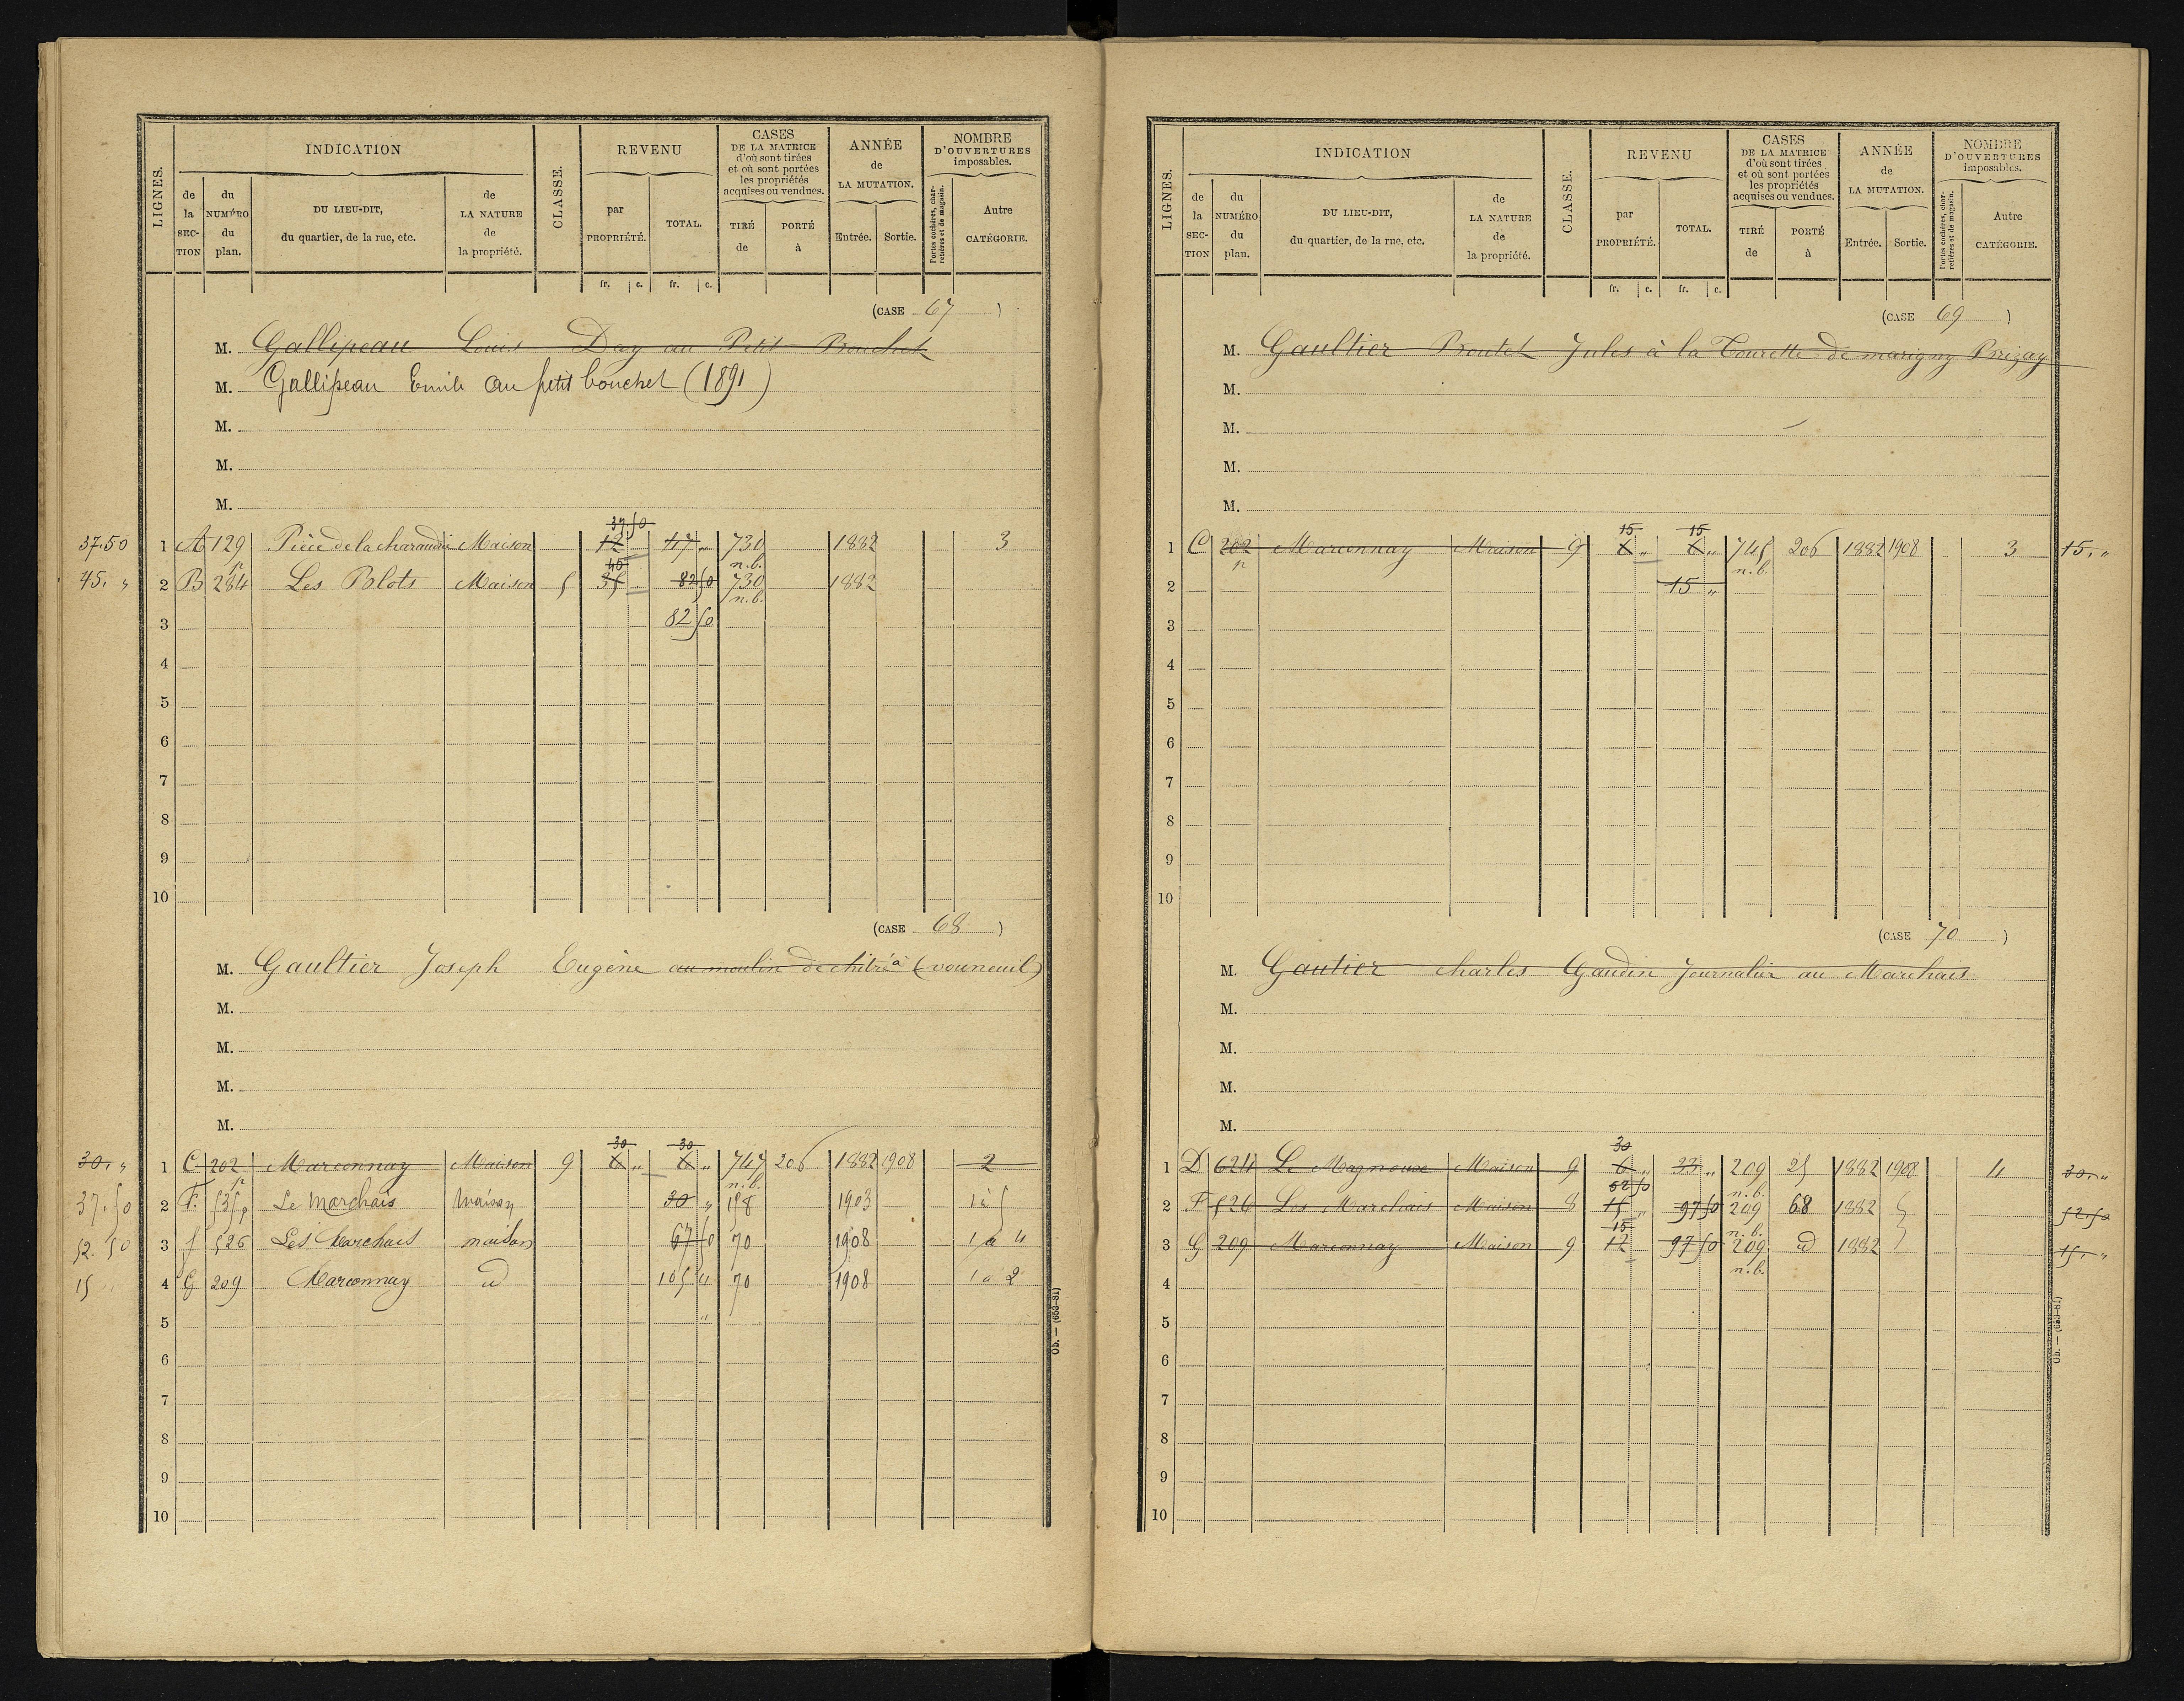 LIGNES.
INDICATION
de la SECTION
du NUMÉRO du plan.
DU LIEU-DIT, du quartier, de la rue, etc.
de LA NATURE de la propriété.
CLASSE.
REVENU
par PROPRIÉTÉ.
TOTAL.
CASES DE LA MATRICE d'où sont tirées et où sont portées les propriétés acquises ou vendues.
TIRÉ de
PORTÉ à
ANNÉE de LA MUTATION.
Entrée.
Sortie.
NOMBRE D'OUVERTURES imposables.
Portes cochères, charretières et de magasin.
Autre CATÉGORIE.
fr. c. fr. c.
(CASE 67)
M. Gallipeau Louis Day au Petit Bouchet
M. Gallipeau Emile au petit bouchet (1891)
M.
M.
M.
37.50
37.50 1 A 129 Pièce de la charaudrie Maison 12 47 „ 730 1882 3
p 40 n.b.
45. „ 2 B 284 Les Blots Maison 5 35 82 50 730 1882
n.b.
3 82 50
4
5
6
7
8
9
10
(CASE 68)
M. Gaultier Joseph Eugène au moulin de chitré à (vouneuil)
M.
M.
M.
M.
30 30
30. „ 1 C 202 Marconnay Maison 9 6 „ 6 „ 747 206 1882 1908 2
p n.b.
37.50 2 F. 535p Le Marchais Maison 30 „ 198 1903 1 à 5
52.50 3 f 526 Les Marchais maison 67 50 70 1908 1 à 4
15 „ 4 G 209 Marconnay id 105 „ 70 1908 1 à 2
5 „
6
7
8
9
10
Ob. — (653-81)
LIGNES.
INDICATION
de la SECTION
du NUMÉRO du plan.
DU LIEU-DIT, du quartier, de la rue, etc.
de LA NATURE de la propriété.
CLASSE.
REVENU
par PROPRIÉTÉ.
TOTAL.
CASES DE LA MATRICE d'où sont tirées et où sont portées les propriétés acquises ou vendues.
TIRÉ de
PORTÉ à
ANNÉE de LA MUTATION.
Entrée.
Sortie.
NOMBRE D'OUVERTURES imposables.
Portes cochères, charretières et de magasin.
Autre CATÉGORIE.
fr. c. fr. c.
(CASE 69)
M. Gaultier Boutet Jules à la Tourette de marigny Brizay
M.
M.
M.
M.
15 15
1 C 202 Marconnay Maison 9 6 „ 6 „ 745 206 1882 1908 3 15. „
p n.b.
2 15 „
3
4
5
6
7
8
9
10
(CASE 70)
M. Gautier charles Gaudin Journalier au Marchais
M.
M.
M.
M.
30
1 D 624 Le Magnoux Maison 9 6 „ 33 „ 209 25 1882 1908 4 30. „
52 50 n.b.
2 F 526 Les Marchais Maison 8 15 „ 97 50 209 68 1882 52.50
15 n.b.
3 G 209 Marconnay Maison 9 12 97 50 209 id 1882 15. „
n.b.
4
5
6
7
8
9
10
Ob. — (653-81)